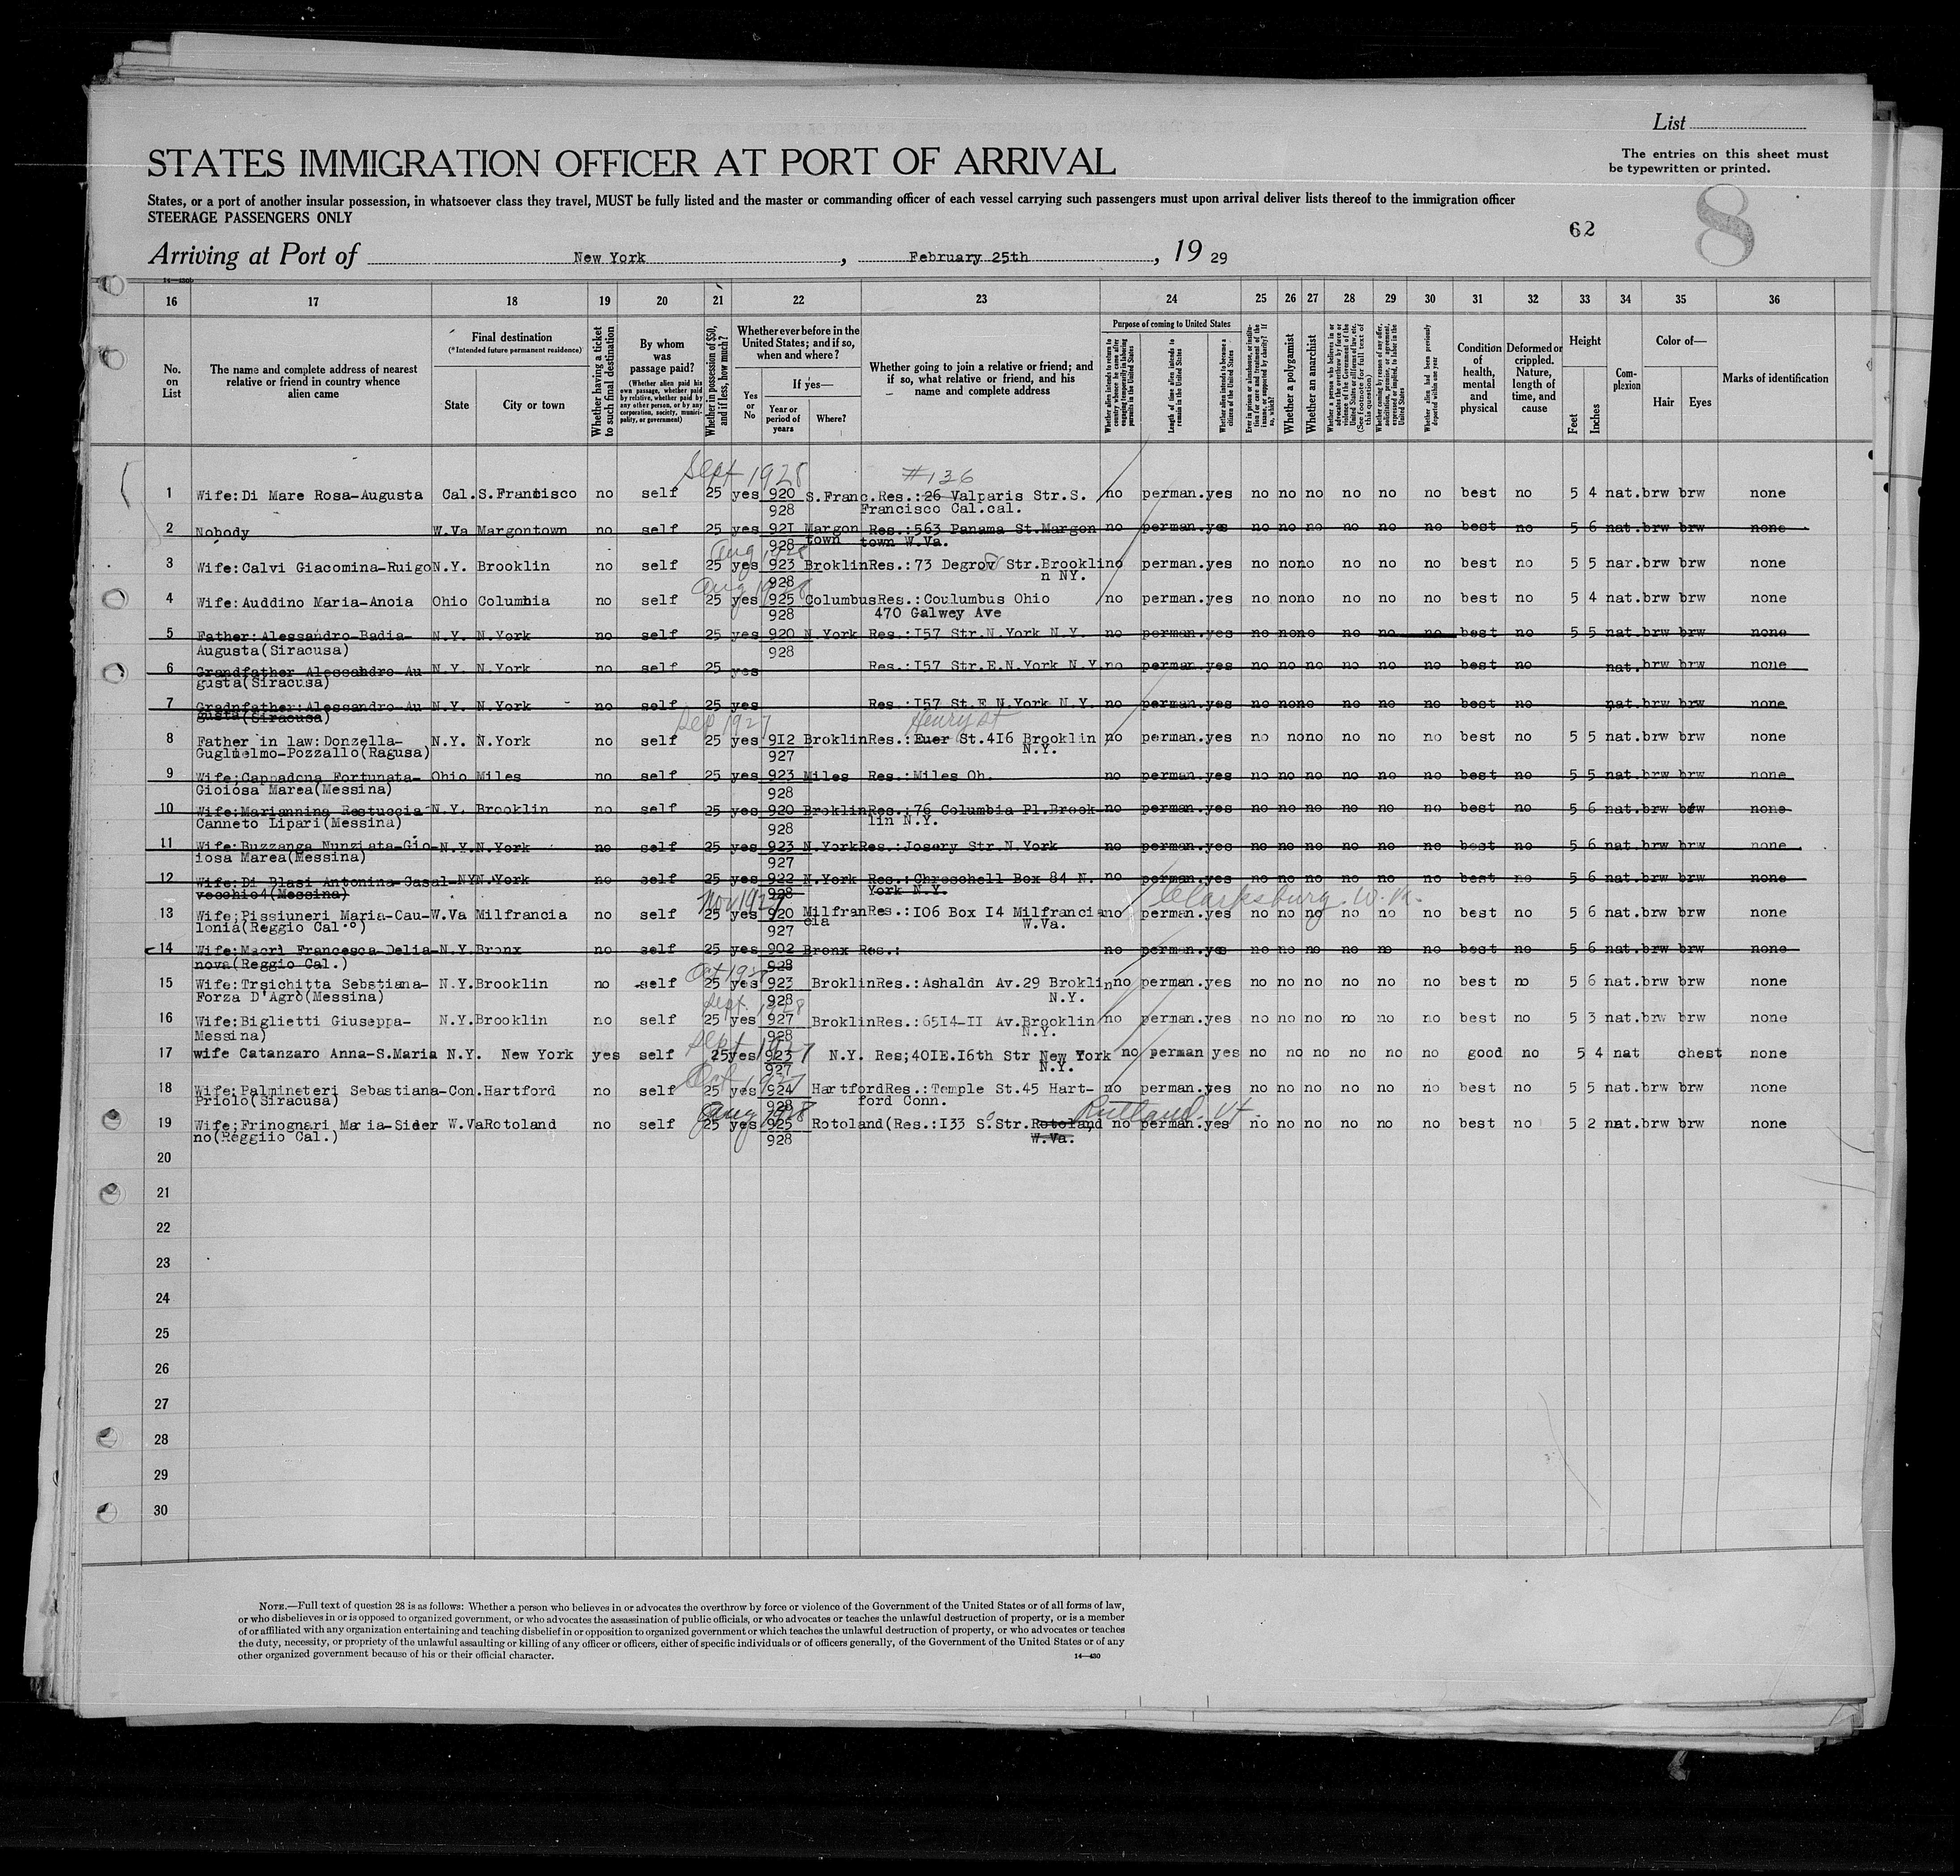 List
STATES IMMIGRATION OFFICER AT PORT OF ARRIVAL
The entries on this sheet must
be typewritten or printed.
States, or a port of another insular possession, in whatsoever class they travel, MUST be fully listed and the master or commanding officer of each vessel carrying such passengers must upon arrival deliver lists thereof to the immigration officer
STEERAGE PASSENGERS ONLY
62
8
Arriving at Port of New York, February 25th, 19 29
16 17 18 19 20 21 22 23 24 25 26 27 28 29 30 31 32 33 34 35 36
No. on List
The name and complete address of nearest relative or friend in country whence alien came
Final destination
(*Intended future permanent residence)
State
City or town
Whether having a ticket to such final destination
By whom was passage paid?
(Whether alien paid his own passage, whether paid by relative, whether paid by any other person, or by any corporation, society, municipality, or government)
Whether in possession of $50, and if less, how much?
Whether ever before in the United States; and if so, when and where?
Yes or No
If yes—
Year or period of years
Where?
Whether going to join a relative or friend; and if so, what relative or friend, and his name and complete address
Purpose of coming to United States
Whether alien intends to return to country whence he came after engaging temporarily in laboring pursuits in the United States
Length of time alien intends to remain in the United States
Whether alien intends to become a citizen of the United States
Whether a polygamist
Whether an anarchist
Whether alien had been previously deported within one year
Condition of health, mental and physical
Deformed or crippled. Nature, length of time, and cause
Height
Feet
Inches
Complexion
Color of—
Hair
Eyes
Marks of identification
Sept 1928 #136
1 Wife:Di Mare Rosa-Augusta Cal. S.Francisco no self 25 yes 920 S.Franc. Res.:26 Valparis Str.S. no perman. yes no no no no no no best no 5 4 nat. brw brw none
928 Francisco Cal.cal.
2 Nobody W.Va Margontown no self 25 yes 92I Margon Res.:563 Panama St.Margon no perman. yes no no no no no no best no 5 6 nat. brw brw none
928 town town W.Va.
Aug 1928
3 Wife:Calvi Giacomina-Ruigo N.Y. Brooklin no self 25 yes 923 Broklin Res.:73 Degrov Str.Brooklin no perman. yes no no no no no no best no 5 5 nar. brw brw none
928 n NY.
Aug 1928
4 Wife:Auddino Maria-Anoia Ohio Columbia no self 25 yes 925 Columbus Res.:Coulumbus Ohio no perman. yes no no no no no no best no 5 4 nat. brw brw none
928 470 Galwey Ave
5 Father:Alessandro-Badia- N.Y. N.York no self 25 yes 920 N.York Res.:I57 Str.N.York N.Y. no perman. yes no no no no no no best no 5 5 nat. brw brw none
Augusta(Siracusa) 928
6 Grandfather Alessandro-Au N.Y. N.York no self 25 yes Res.:I57 Str.E.N.York N.Y. no perman. yes no no no no no no best no nat. brw brw none
gusta(Siracusa)
7 Gradnfather:Alessandro-Au N.Y. N.York no self 25 yes Res.:I57 St.E N.York N.Y. no perman. yes no no no no no no best no nat. brw brw none
gusta(Siracusa)
Sep 1927 Henry St
8 Father in law:Donzella- N.Y. N.York no self 25 yes 9I2 Broklin Res.:Euer St.4I6 Brooklin no perman. yes no no no no no no best no 5 5 nat. brw brw none
Guglielmo-Pozzallo(Ragusa) 927 N.Y.
9 Wife;Cappadona Fortunata- Ohio Miles no self 25 yes 923 Miles Res.:Miles Oh. no perman. yes no no no no no no best no 5 5 nat. brw brw none
Gioiosa Marea(Messina) 928
10 Wife:Mariannina Restuccia N.Y. Brooklin no self 25 yes 920 Broklin Res.:76 Columbia Pl.Brook- no perman. yes no no no no no no best no 5 6 nat. brw brw none
Canneto Lipari(Messina) 928 lin N.Y.
11 Wife:Buzzanga Nunziata-Gio- N.Y. N.York no self 25 yes 923 N.York Res.:Josery Str.N.York no perman. yes no no no no no no best no 5 6 nat. brw brw none
iosa Marea(Messina) 927
12 Wife:Di Blasi Antonina-Casal- NY N.York no self 25 yes 922 N.York Res.:Chreschell Box 84 N. no perman. yes no no no no no no best no 5 6 nat. brw brw none
vecchio4(Messina) 928 York N.Y.
Nov 1927 Clarksburg W. Va.
13 Wife;Pissiuneri Maria-Cau- W.Va Milfrancia no self 25 yes 920 Milfran Res.:I06 Box I4 Milfrancia no perman. yes no no no no no no best no 5 6 nat. brw brw none
lonia(Reggio Cal.) 927 cia W.Va.
14 Wife:Macri Francesca-Delia- N.Y. Bronx no self 25 yes 902 Bronx Res.: no perman. yes no no no no no no best no 5 6 nat. brw brw none
nova(Reggio Cal.) 928
Oct 1928
15 Wife:Trsichitta Sebstiana- N.Y. Brooklin no self 25 yes 923 Broklin Res.:Ashaldn Av.29 Broklin no perman. yes no no no no no no best no 5 6 nat. brw brw none
Forza D'Agrò(Messina) 928 N.Y.
Sept. 1928
16 Wife:Biglietti Giuseppa- N.Y. Brooklin no self 25 yes 927 Broklin Res.:65I4-II Av.Brooklin no perman. yes no no no no no no best no 5 3 nat. brw brw none
Messina) 928 N.Y.
Sept 1927
17 wife Catanzaro Anna-S.Maria N.Y. New York yes self 25 yes 923 N.Y. Res;40IE.I6th Str New York no perman yes no no no no no no good no 5 4 nat chest none
927 N.Y.
Oct 1927
18 Wife:Palmineteri Sebastiana- Con. Hartford no self 25 yes 924 Hartford Res.:Temple St.45 Hart- no perman. yes no no no no no no best no 5 5 nat. brw brw none
Priolo(Siracusa) 928 ford Conn.
Aug 1928 Rutland. Vt.
19 Wife;Frinognari Maria-Sider W.Va Rotoland no self 25 yes 925 Rotoland (Res.:I33 S.Str.Rotoland no perman. yes no no no no no no best no 5 2 nat. brw brw none
no(Reggiio Cal.) 928 W.Va.
20
21
22
23
24
25
26
27
28
29
30
NOTE.—Full text of question 28 is as follows: Whether a person who believes in or advocates the overthrow by force or violence of the Government of the United States or of all forms of law,
or who disbelieves in or is opposed to organized government, or who advocates the assassination of public officials, or who advocates or teaches the unlawful destruction of property, or is a member
of or affiliated with any organization entertaining and teaching disbelief in or opposition to organized government or which teaches the unlawful destruction of property, or who advocates or teaches
the duty, necessity, or propriety of the unlawful assaulting or killing of any officer or officers, either of specific individuals or of officers generally, of the Government of the United States or of any
other organized government because of his or their official character.
14—430